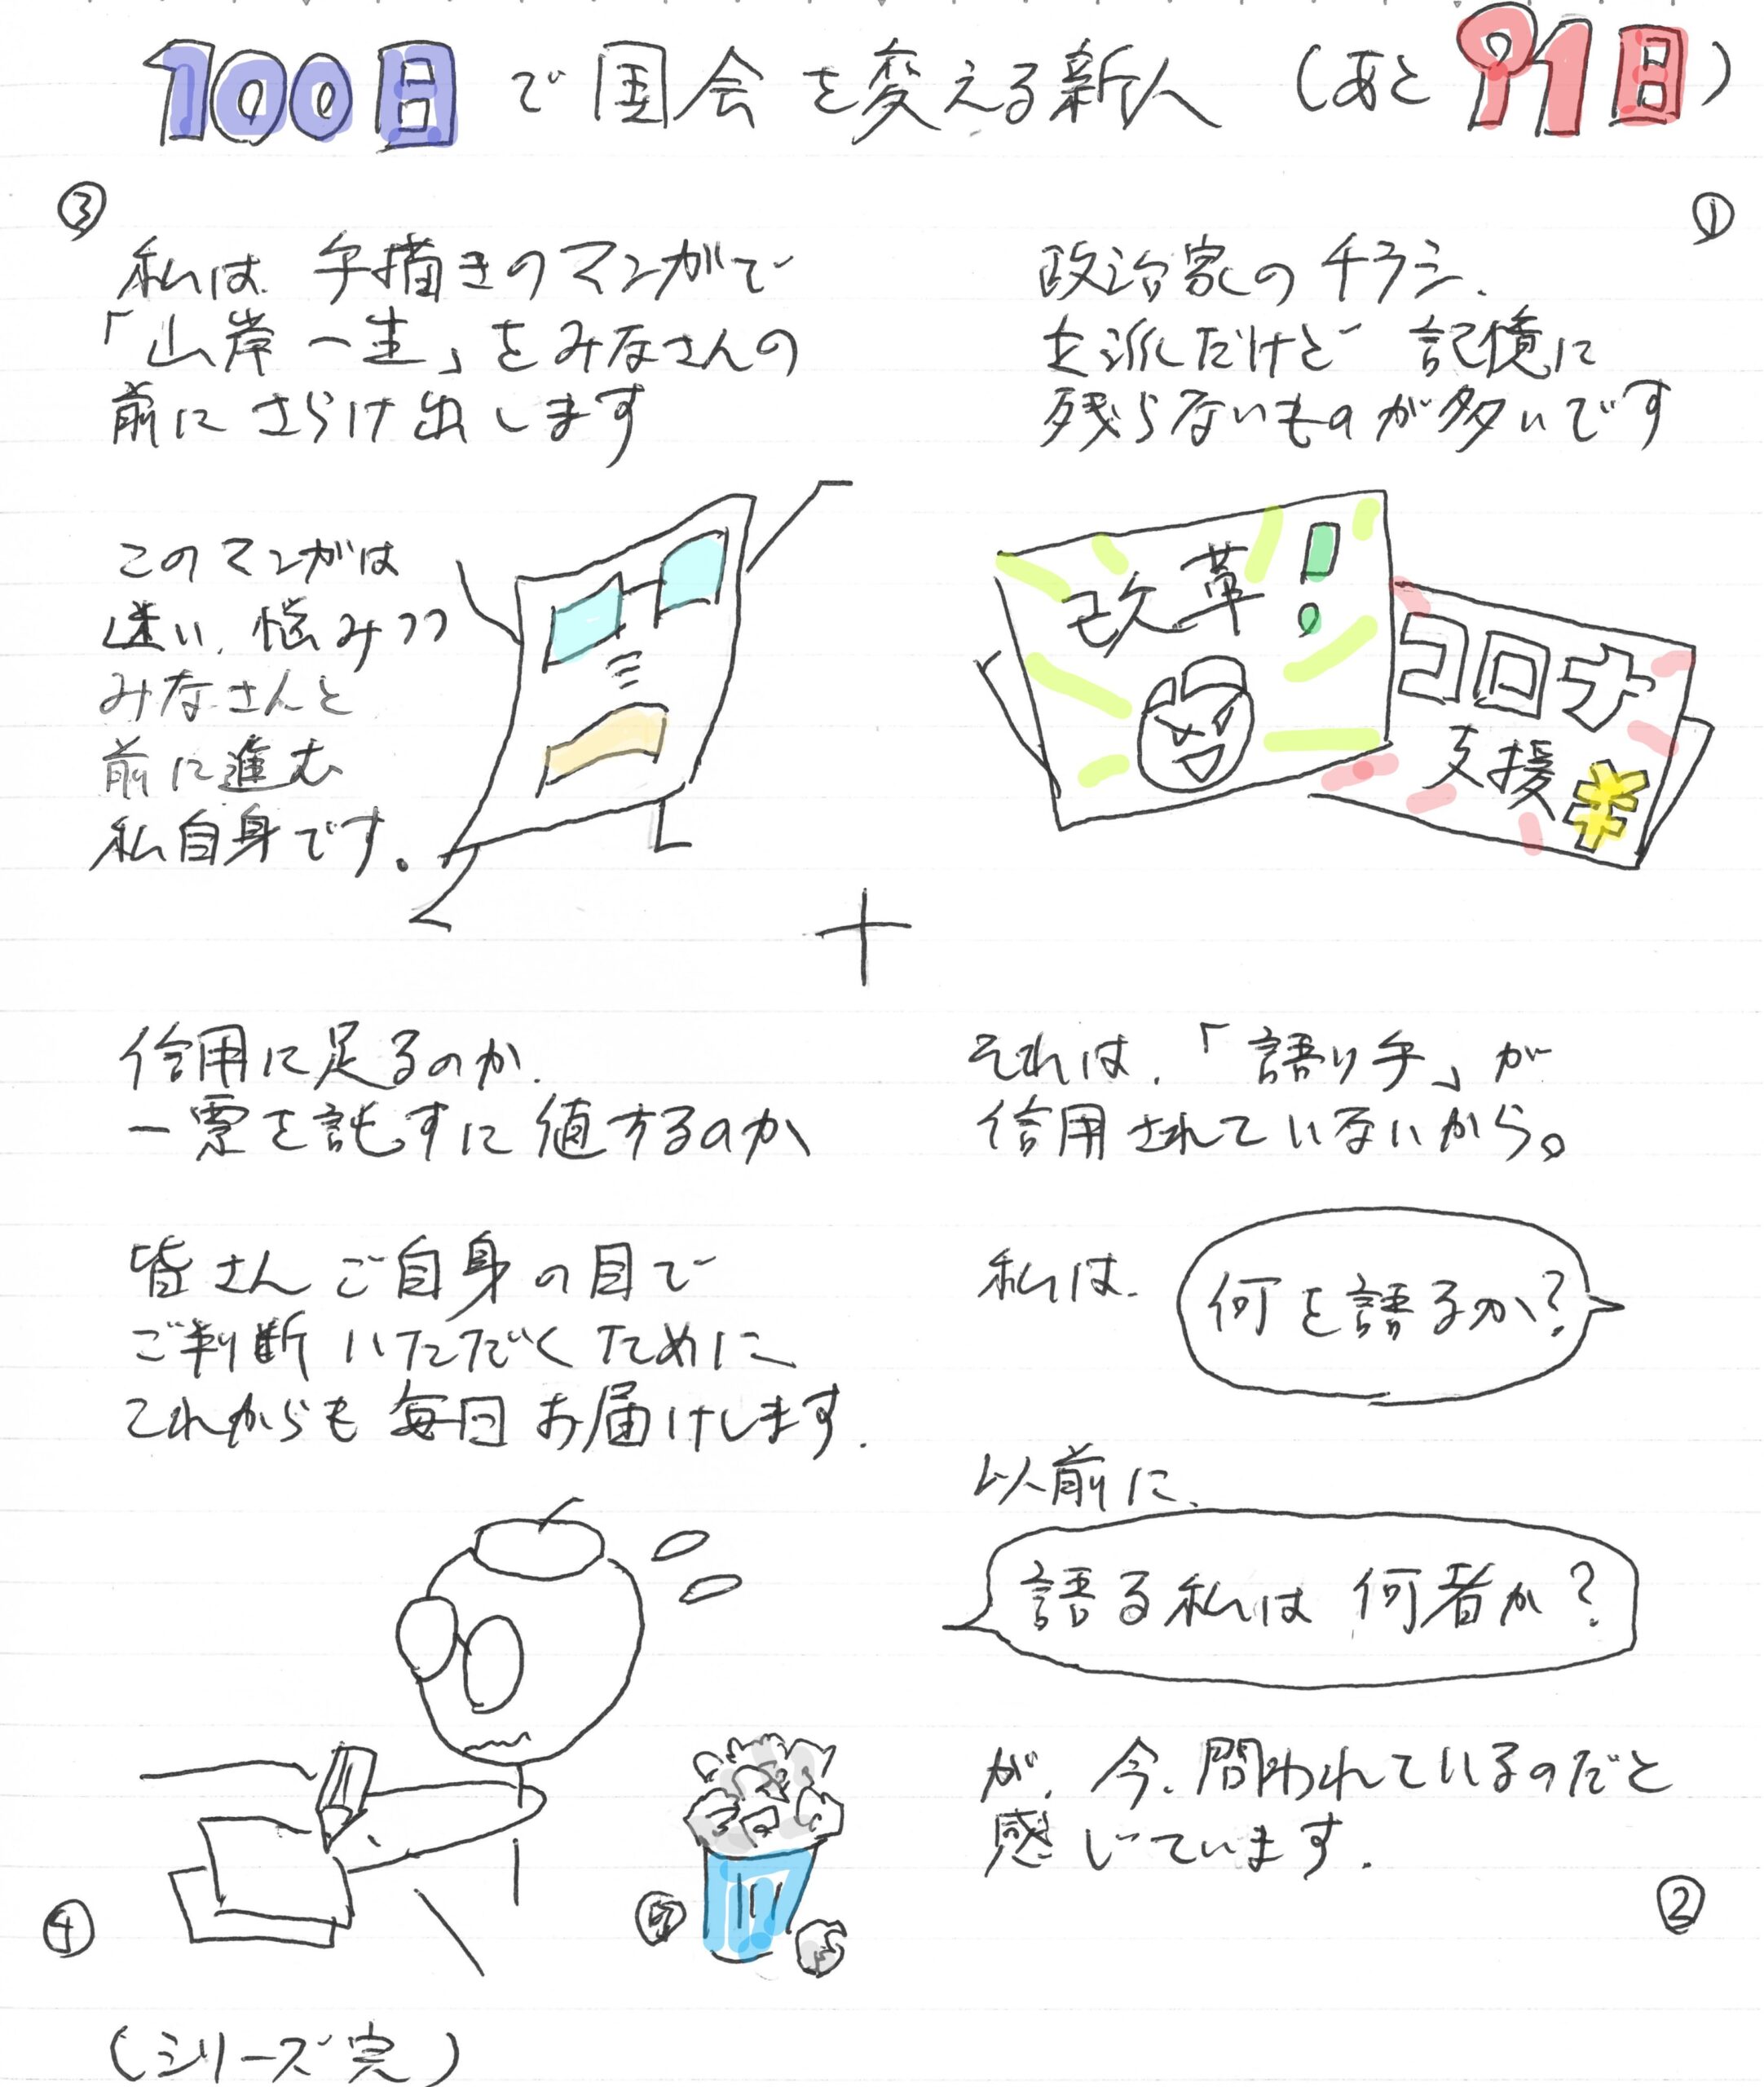 100日で国会を変える新人（あと91日）
①
政治家のチラシ、
立派だけど 記憶に
残らないものが多いです
改革!
コロナ
支援
¥
それは、「語り手」が
信用されていないから。
私は、
何を語るか?
以前に、
語る私は 何者か?
が、今、問われているのだと
感じています。
②
③
私は、手描きのマンガで
「山岸一生」をみなさんの
前にさらけ出します
このマンガは
迷い、悩みつつ
みなさんと
前に進む
私自身です。
信用に足るのか、
一票を託すに値するのか
皆さんご自身の目で
ご判断いただくために
これからも毎日お届けします。
④
(シリーズ完)